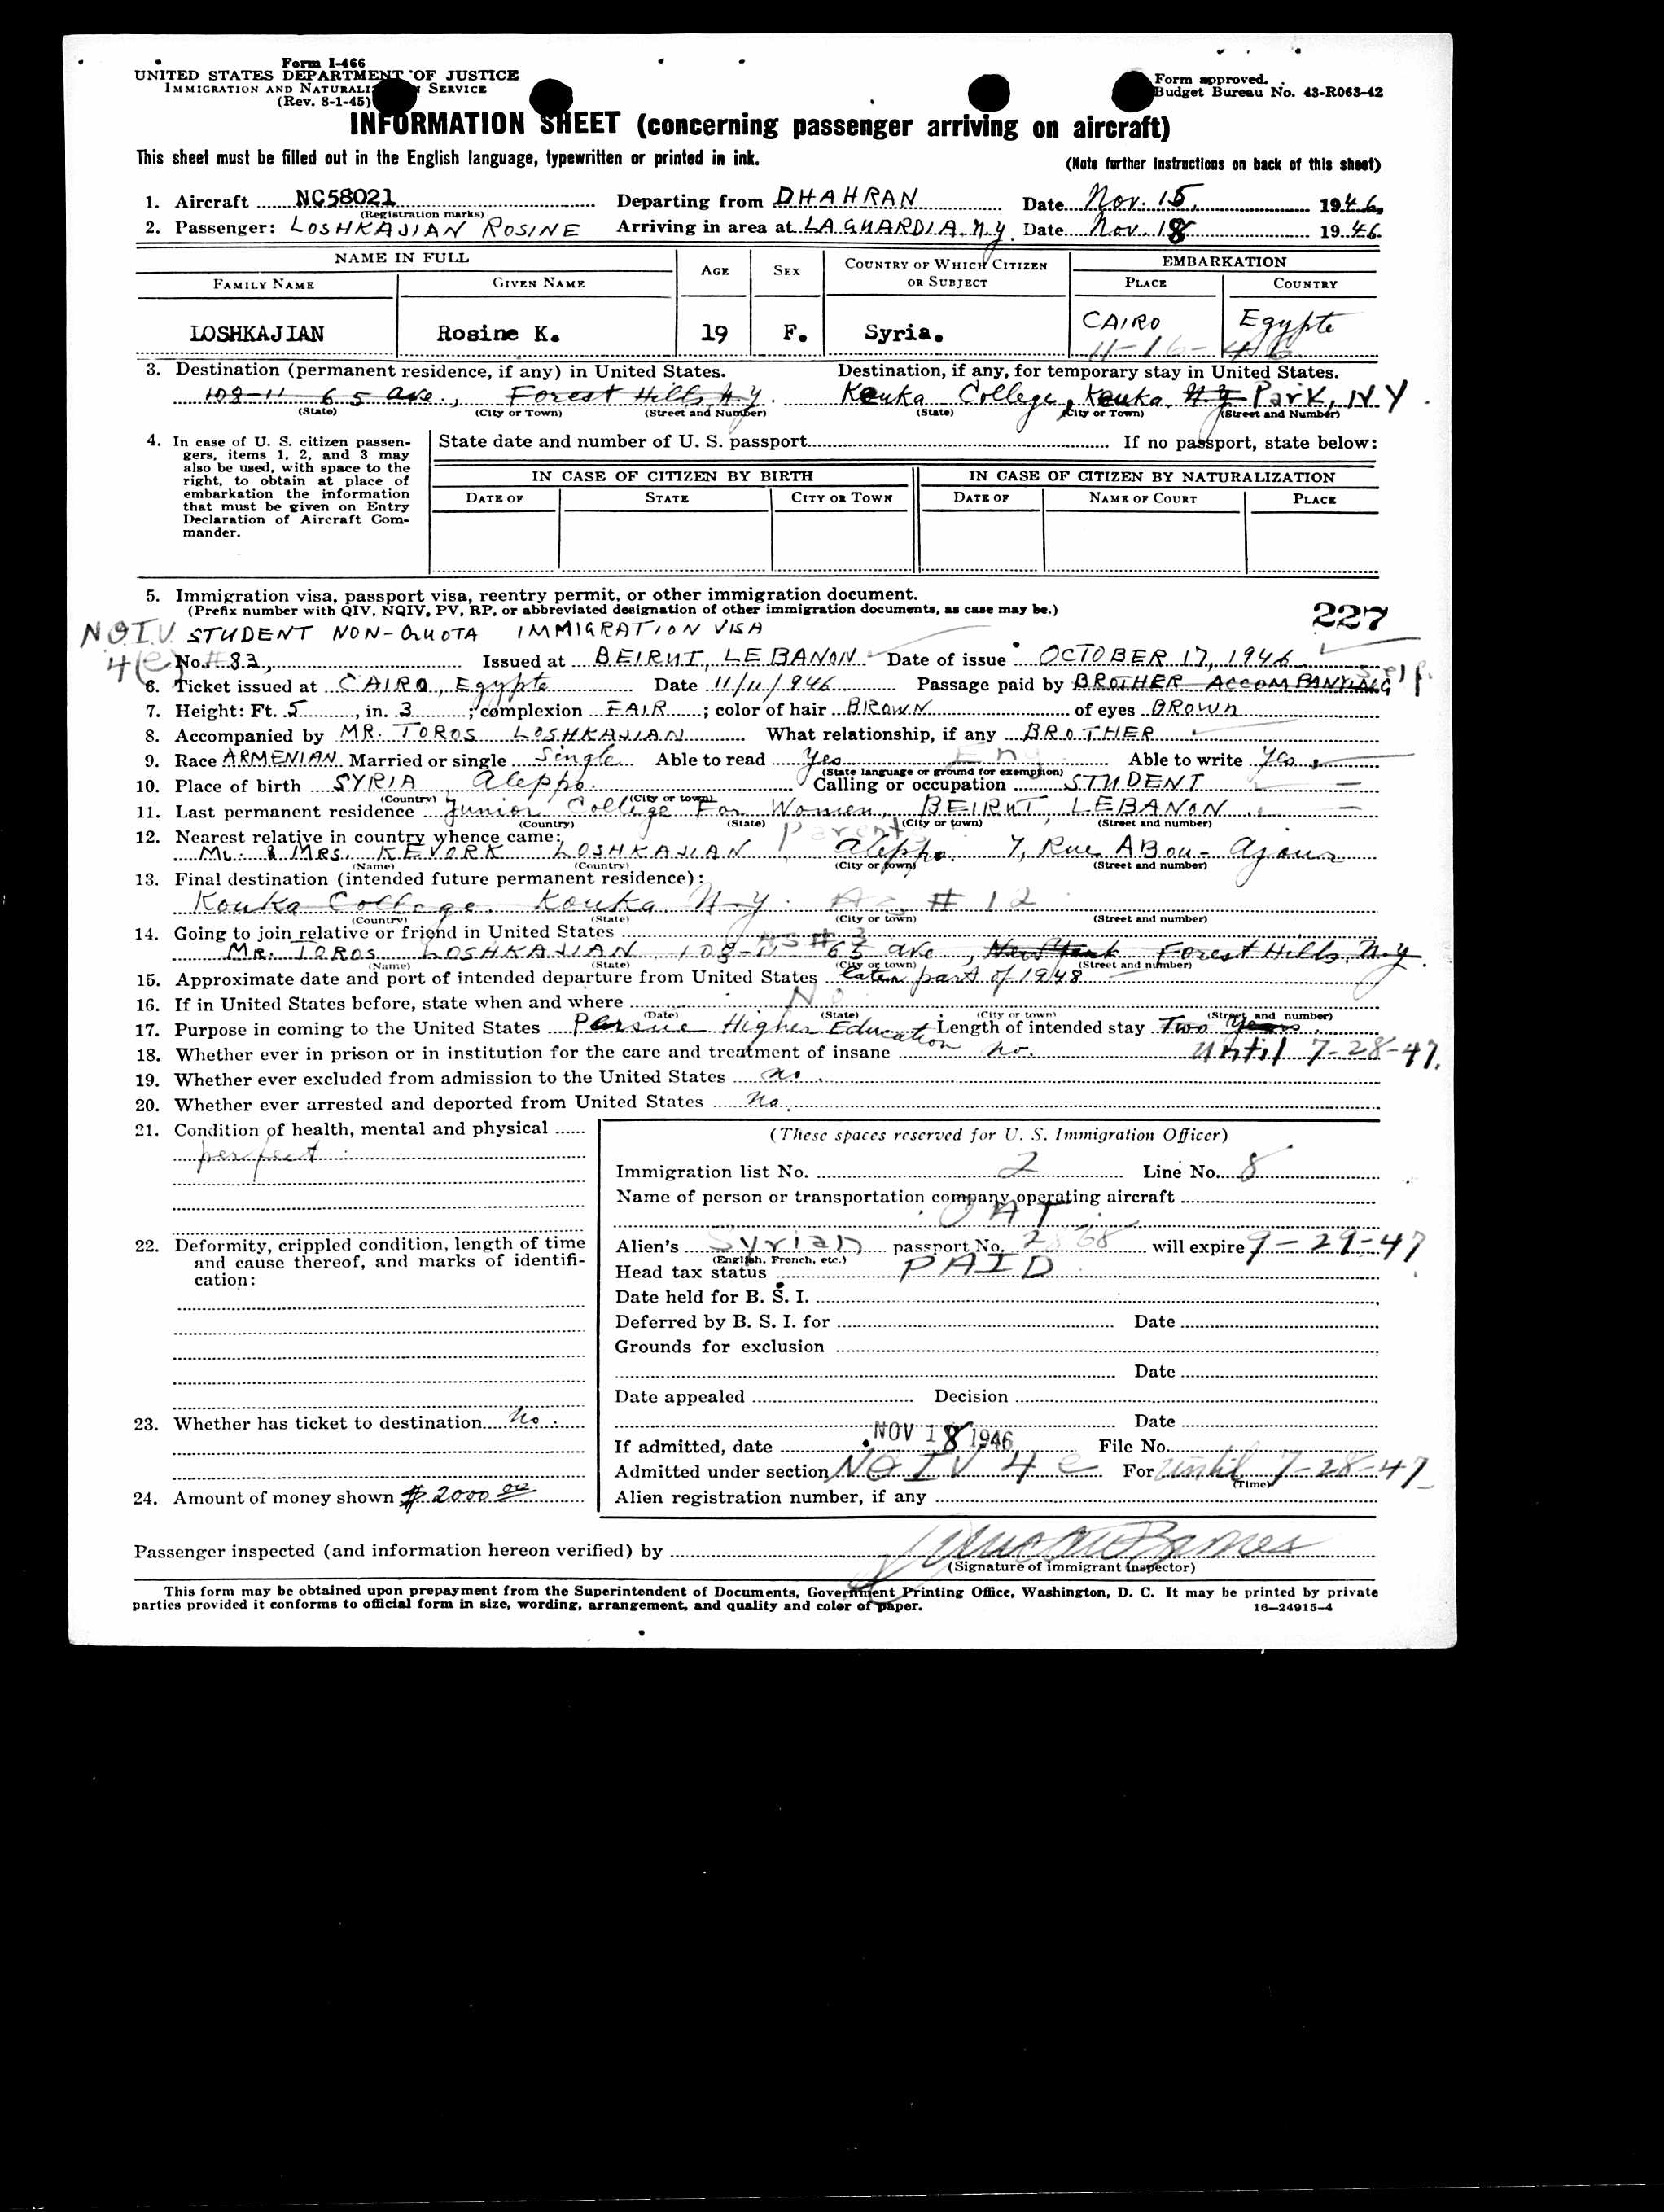 Form I-466
UNITED STATES DEPARTMENT OF JUSTICE
IMMIGRATION AND NATURALI SERVICE
(Rev. 8-1-45)
Form approved.
Budget Bureau No. 43-R063-42
INFORMATION SHEET (concerning passenger arriving on aircraft)
This sheet must be filled out in the English language, typewritten or printed in ink.
(Note further instructions on back of this sheet)
1. Aircraft NC58021 Departing from DHAHRAN Date Nov. 15, 1946,
(Registration marks)
2. Passenger: LOSHKAJIAN ROSINE Arriving in area at LA GUARDIA N.Y. Date Nov. 18 1946.
NAME IN FULL
FAMILY NAME GIVEN NAME AGE SEX COUNTRY OF WHICH CITIZEN OR SUBJECT EMBARKATION PLACE COUNTRY
LOSHKAJIAN Rosine K. 19 F. Syria. CAIRO Egypte
11-16-46
3. Destination (permanent residence, if any) in United States. Destination, if any, for temporary stay in United States.
108-11 65 ave., Forest Hills N.Y. Keuka College, Keuka N.Y Park, N.Y.
(State) (City or Town) (Street and Number) (State) (City or Town) (Street and Number)
4. In case of U. S. citizen passengers, items 1, 2, and 3 may
also be used, with space to the
right, to obtain at place of
embarkation the information
that must be given on Entry
Declaration of Aircraft Commander.
State date and number of U. S. passport If no passport, state below:
IN CASE OF CITIZEN BY BIRTH IN CASE OF CITIZEN BY NATURALIZATION
DATE OF STATE CITY OR TOWN DATE OF NAME OF COURT PLACE
5. Immigration visa, passport visa, reentry permit, or other immigration document.
(Prefix number with QIV, NQIV, PV, RP, or abbreviated designation of other immigration documents, as case may be.)
227
NQIV STUDENT NON-QUOTA IMMIGRATION VISA
4(e) No. # 83, Issued at BEIRUT, LEBANON Date of issue OCTOBER 17, 1946
6. Ticket issued at CAIRO, Egypte Date 11/11/946 Passage paid by BROTHER ACCOMPANYING Self.
7. Height: Ft. 5, in. 3; complexion FAIR; color of hair BROWN of eyes BROWN
8. Accompanied by MR. TOROS LOSHKAJIAN What relationship, if any BROTHER
9. Race ARMENIAN Married or single Single Able to read Yes Eng Able to write Yes
(State language or ground for exemption)
10. Place of birth SYRIA Aleppo. Calling or occupation STUDENT
(Country) (City or town)
11. Last permanent residence Junior College For Women, BEIRUT, LEBANON
(Country) (State) (City or town) (Street and number)
12. Nearest relative in country whence came: Parents
Mr. & MRS. KEVORK LOSHKAJIAN Aleppo. 7, Rue ABou- Ajour
(Name) (Country) (City or town) (Street and number)
13. Final destination (intended future permanent residence):
Kouka College, Kouka N-Y. As # 12
(Country) (State) (City or town) (Street and number)
14. Going to join relative or friend in United States As # 3
MR. TOROS LOSHKAJIAN 108-11 65 ave, New York Forest Hills, N.Y.
(Name) (State) (City or town) (Street and number)
15. Approximate date and port of intended departure from United States Later part of 1948
16. If in United States before, state when and where No
(Date) (State) (City or town) (Street and number)
17. Purpose in coming to the United States Persue Higher Education Length of intended stay Two Years.
18. Whether ever in prison or in institution for the care and treatment of insane no. Until 7-28-47.
19. Whether ever excluded from admission to the United States no.
20. Whether ever arrested and deported from United States No.
21. Condition of health, mental and physical
perfect
(These spaces reserved for U. S. Immigration Officer)
Immigration list No. 2 Line No. 8
Name of person or transportation company operating aircraft
22. Deformity, crippled condition, length of time
and cause thereof, and marks of identification:
Alien's Syrian passport No. 2868 will expire 9-29-47
(English, French, etc.)
Head tax status PAID
Date held for B. S. I.
Deferred by B. S. I. for Date
Grounds for exclusion
Date
Date appealed Decision
23. Whether has ticket to destination No. Date
If admitted, date NOV 18 1946 File No.
Admitted under section NQIV 4 e For until 7-28-47
(Time)
24. Amount of money shown $ 2000 00 Alien registration number, if any
Passenger inspected (and information hereon verified) by
(Signature of immigrant inspector)
This form may be obtained upon prepayment from the Superintendent of Documents, Government Printing Office, Washington, D. C. It may be printed by private
parties provided it conforms to official form in size, wording, arrangement, and quality and color of paper.
16—24915-4